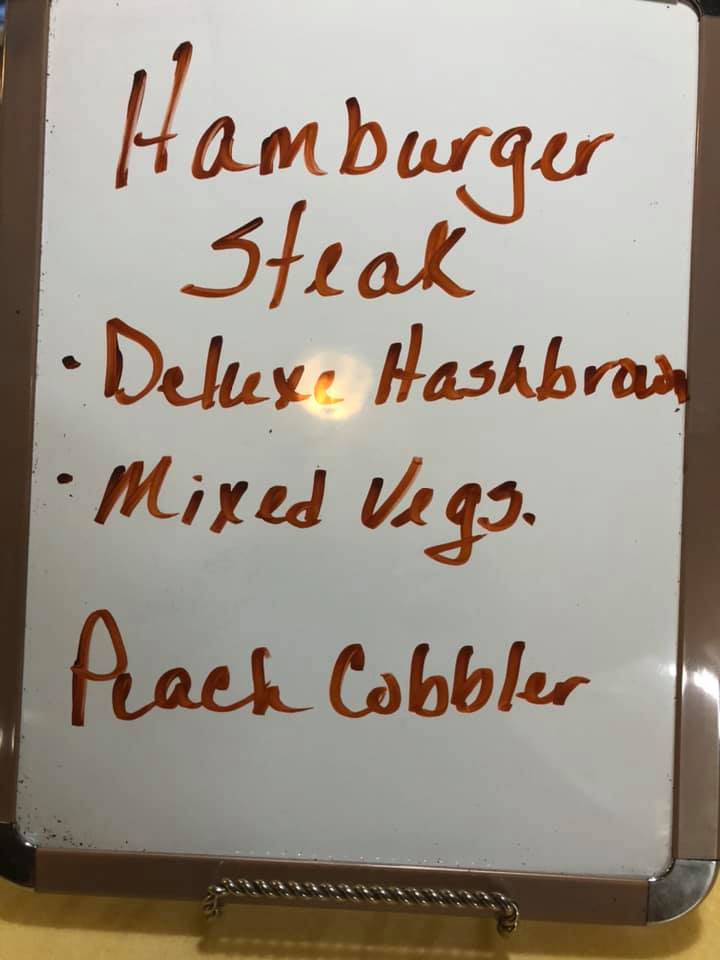 Hamburger
Steak
· Deluxe Hashbrown
· Mixed Vegs.
Peach Cobbler